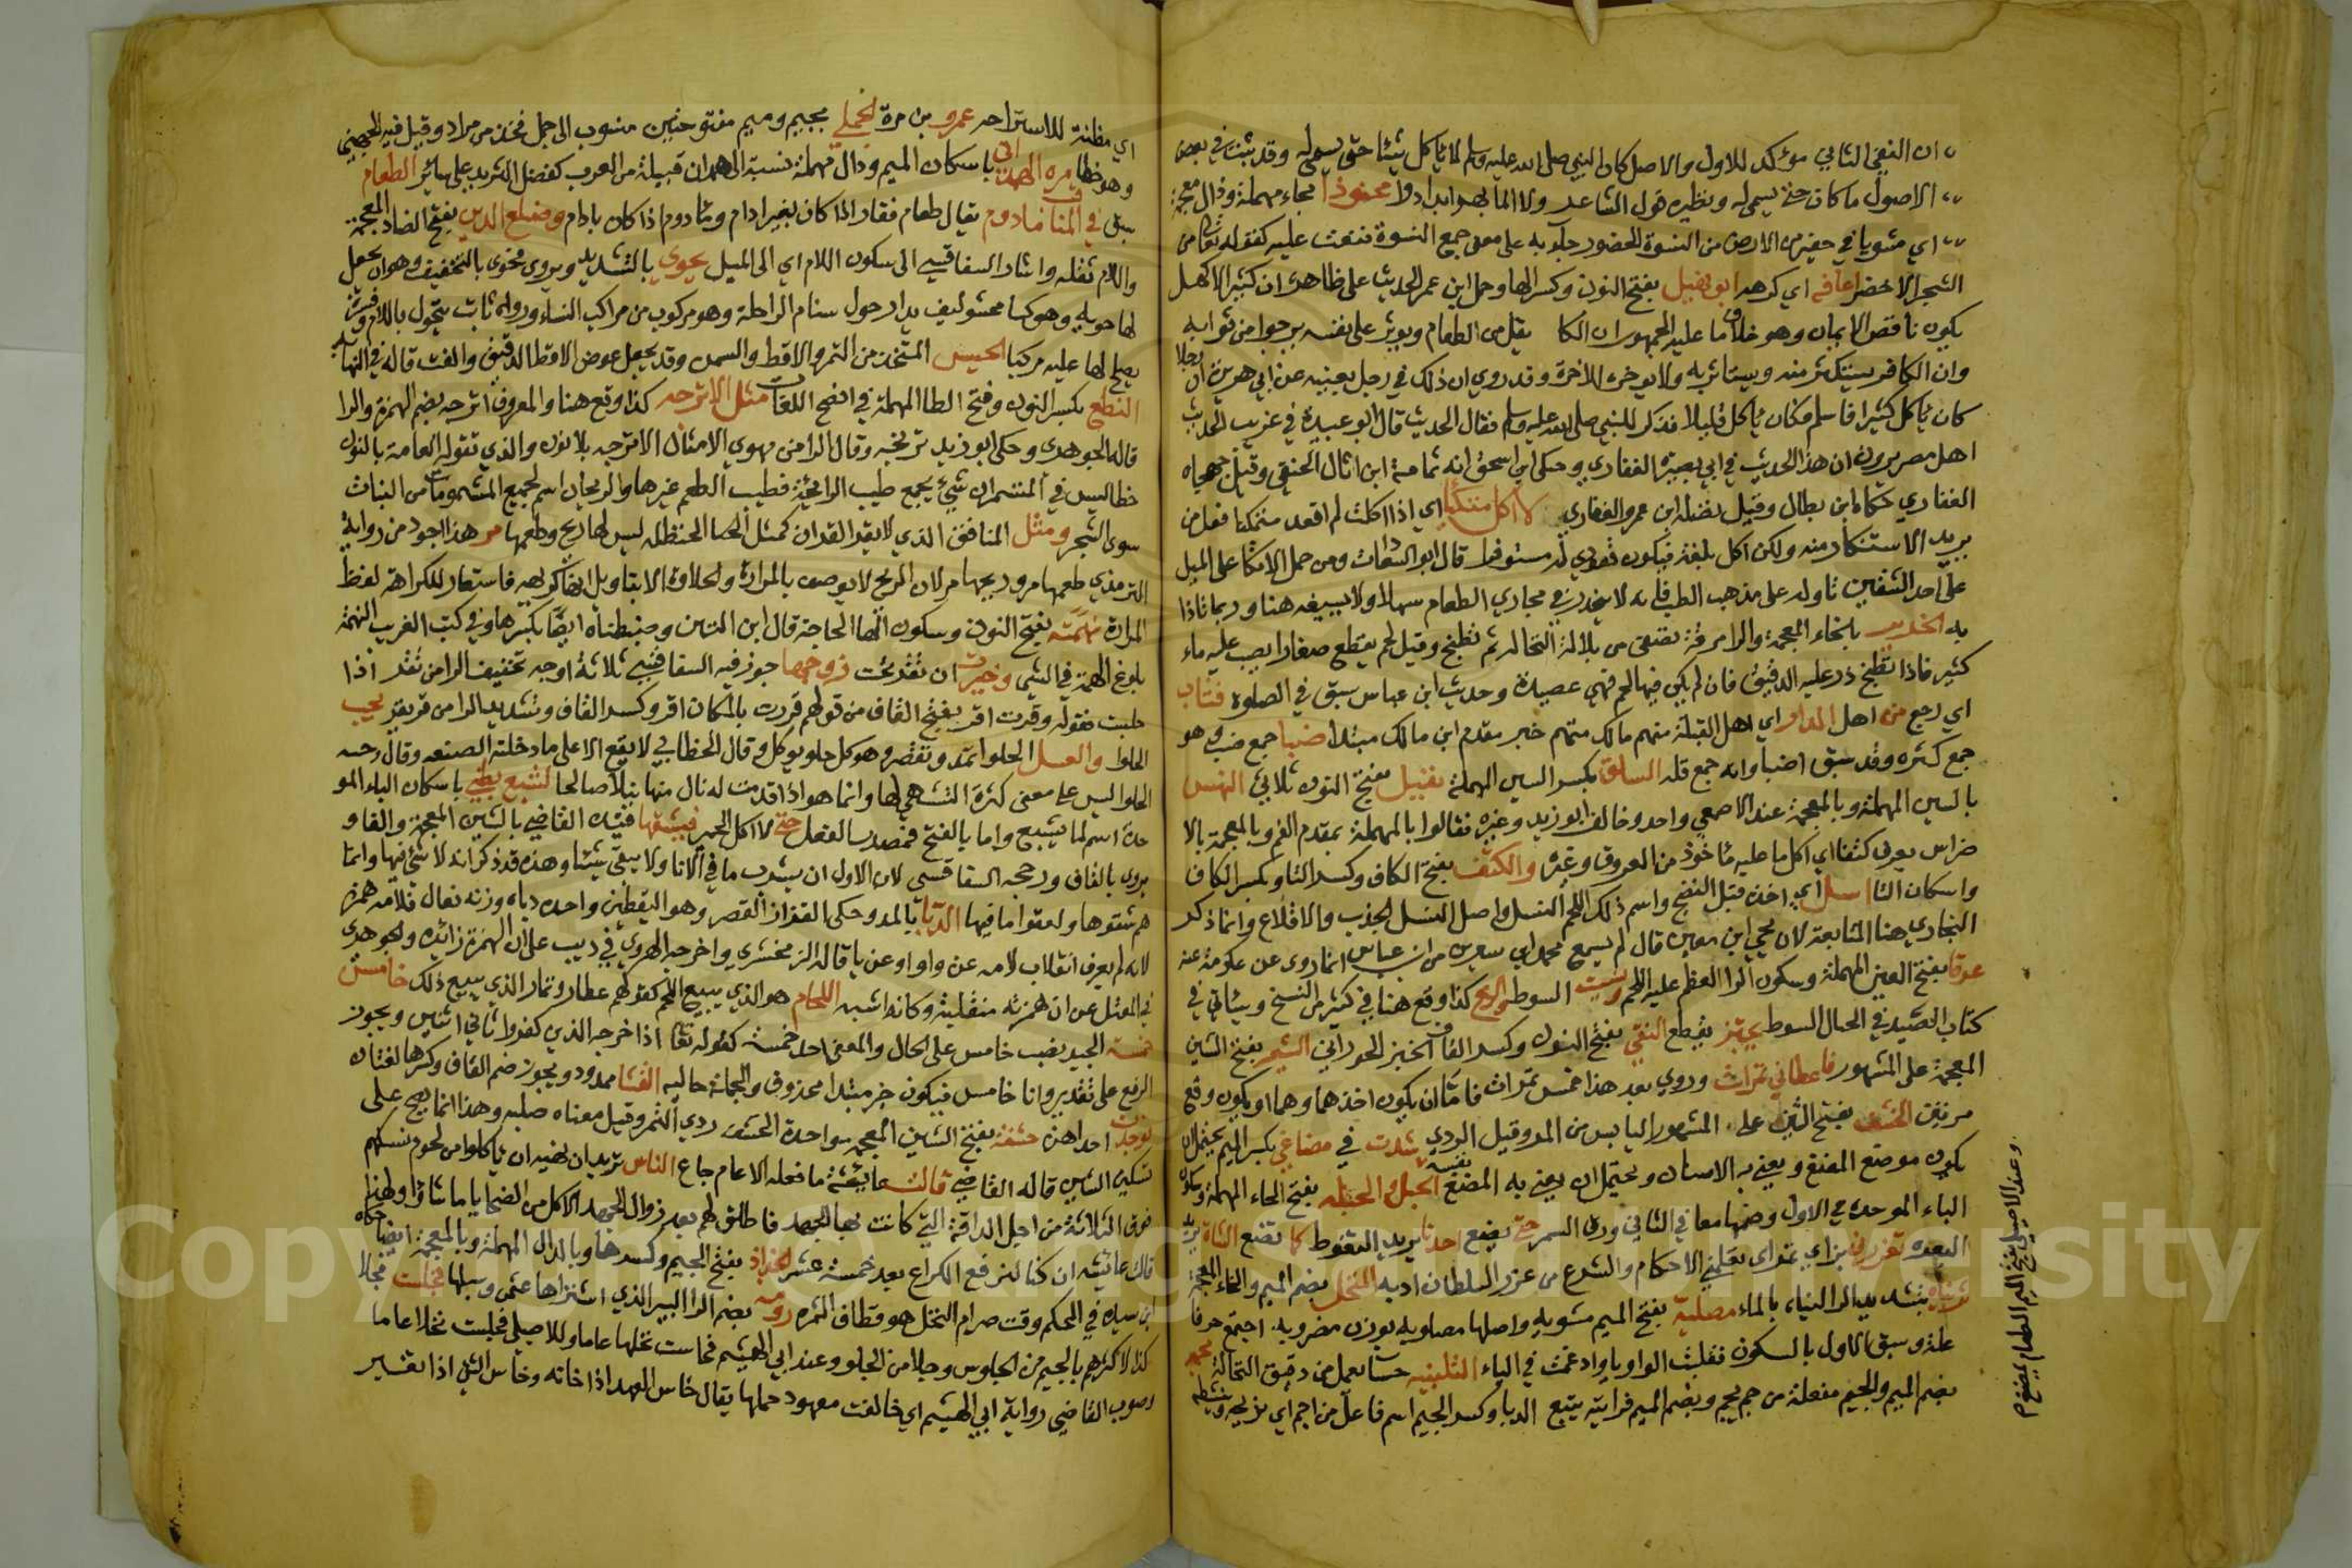 ان النفي الثاني مؤكد للاول والاصل كان النبي صلى الله عليه وسلم لا ياكل شيئا حتى يسمى له وقد ثبت في بعض
الاصول ما كان حتى يسمى له ونظيره قول الشاعر ولا للما بهم ابدا دوا محنوذا بحاء مهملة وذال معجمة
اي مشويا في حفيرة من الارض من النسوة الحضور جاء به على معنى جمع النسوة فنعت عليه كقوله تعالى من
الشجر الاخضر اعافه اي اكرهه ابو نهيك بفتح النون وكسر الها وحمل ابن عمر الحديث على ظاهره ان كثير الاكل
يكون ناقص الايمان وهو خلاف ما عليه الجمهور ان يقل من الطعام ويوثر على نفسه يرجوا من ثوابه
وان الكافر يستكثر منه ويستاثر به ولا يدخره للاخرة وقد روي ان ذلك في رجل بعينه عن ابي هريرة ان رجلا
كان ياكل كثيرا فاسلم فكان ياكل قليلا فذكر للنبي صلى الله عليه وسلم فقال الحديث قال ابو عبيدة في غريب الحديث
اهل مصر يرون ان هذا الحديث في ابي بصرة الغفاري وحكى ابن اسحق انه ثمامة ابن اثال الحنفي وقيل جهجاه
الغفاري حكاه ابن بطال وقيل نضلة ابن عمرو الغفاري لا اكل متكئا اي اذا اكلت لم اقعد متمكنا فعل من
يريد الاستكثار منه ولكن اكل بلغة فيكون قعودي له مستوفزا قال ابو السعادات ومن حمل الاتكا على الميل
على احد الشقين تاوله على مذهب الطب فانه لا ينحدر في مجاري الطعام سهلا ولا يسيغه هنيا وربما تاذا
به الخزيرة بالخاء المعجمة والرا مرقة تصفى من بلالة النخالة ثم تطبخ وقيل لحم يقطع صغارا يصب عليه ماء
كثير فاذا نضج ذر عليه الدقيق فان لم يكن فيها لحم فهي عصيدة وحديث ابن عباس سبق في الصلوة فثاب
اي رجع من اهل الدار اي اهل القبلة منهم مالك متهم خبر مقدم ابن مالك مبتدا ضبا جمع ضب وهو
جمع كثرة وقد سبق اضبا وانه جمع قلة السلق بكسر السين المهملة بفتح النون ثلاثي النهس
بالسين المهملة وبالمعجمة عند الاصمعي واحد وخالفه ابو زيد وغيره فقالوا بالمهملة بمقدم الفم وبالمعجمة بالا
ضراس يعرق كتفا اي اكل ما عليه ماخوذ من العروق وغيره والكتف بفتح الكاف وكسر التا وبكسر الكاف
واسكان التا انتشل اي اخذه قبل النضج واسم ذلك اللحم النشل واصل النشل الجذب والاقلاع وانما ذكر
البخاري هنا المتابعة لان يحيى ابن معين قال لم يسمع محمد ابن سيرين من ابن عباس انما روى عن عكرمة عنه
عرقا بفتح العين المهملة وسكون الرا العظم عليه اللحم السوط كذا وقع هنا في كثير من النسخ وسياتي في
كتاب الصيد في الحبال السوط يحتز يقطع النقي بفتح النون وكسر القاف الخبز الحوراني الشعير بفتح الشين
المعجمة على المشهور فاعطاني تمرات وروي بعد هذا خمس تمرات فاما ان يكون احدهما وهما او يكون وقع
مرتين الحشف بفتح الشين على المشهور اليابس من التمر وقيل الردي شدت في مضاغي بكسر الميم يحتمل ان
يكون موضع المضغ ويعني به الاسنان ويحتمل ان يعني به المضغ نفسه الحبلة او الحبلة بفتح الحاء المهملة وسكون
الباء الموحدة في الاول وضمها معا في الثاني ورق السمر حتى يضع احدنا يريد التغوط كما تضع الشاة يريد
البعر تعزرني بزاي ثم راي تعلمني الاحكام والشرع من عزر السلطان ادبه المنخل بضم الميم والخاء المعجمة
ثريناه بتشديد الرا اليناه بالماء مصلية بفتح الميم مشوية واصلها مصلوية بوزن مضروبة اجتمع حرفا
علة وسبق الاول بالسكون فقلبت الواو ياء وادغمت في الياء التلبينة حسا يعمل من دقيق النخالة مجمة
بضم الميم والجيم مفعلة من جم يجم وبضم الميم فرايته يتتبع الدبا وكسر الجيم اسم فاعل من اجم اي تريحه وتنشطه
وعند الاصيلي بفتح الميم الطعام يمضغ م
اي مظنة للاستراحة عمرو بن مرة الجملي بجيم وميم مفتوحتين منسوب الى جمل فخذ من مراد وقيل فيه الجهني
وهو خطا مرة الهمداني باسكان الميم ودال مهملة نسبة الى همدان قبيلة من العرب كفضل الثريد على سائر الطعام
سبق في المناقب مادوم يقال طعام قفار اذا كان بغير ادام ومادوم اذا كان بادام وضلع الدين بفتح الضاد المعجمة
واللام ثقله واشار السفاقسي الى سكون اللام اي الى الميل يحوي بالتشديد ويروى يحوي بالتخفيف وهو ان يجعل
لها حوية وهو كسا محشو ليف يدار حول سنام الراحلة وهو مركوب من مراكب النساء ورواه ثابت يحول باللام وفسره
يصلح لها عليه مركبا الحيس المتخذ من التمر والاقط والسمن وقد يجعل عوض الاقط الدقيق والفت قاله في النهاية
النطع بكسر النون وفتح الطا المهملة في افصح اللغات مثل الاترجه كذا وقع هنا والمعروف اترجه بضم الهمزة والرا
قاله الجوهري وحكى ابو زيد ترنجه وقال الرامهرمزي الامثال الاترجه بلا نون والذي تقوله العامة بالنون
خطا ليس في المشمومات شيء يجمع طيب الرائحة فطيب الطعم غيرها والريحان اسم لجميع المشمومات من النبات
سوى الشجر ومثل المنافق الذي لا يقرا القران كمثل الحنظلة ليس لها ريح وطعمها مر هذا اجود من رواية
الترمذي طعمها مر وريحها مر لان الريح لا يوصف بالمرارة ولحلاوة الا بتاويل ايضا كريهه فاستعار للكراهة لفظ
المرارة نهمته بفتح النون وسكون الها الحاجة قال ابن التين وضبطناه ايضا بكسرها وفي كتب الغريب النهمة
بلوغ الهمة في الشي وخيرت ان تقر تحت زوجها جوز فيه السفاقسي ثلاثة اوجه تخفيف الرا من تقر اذا
حليت فقوله وقرت اقر بفتح القاف من قولهم قررت بالمكان اقر وكسر القاف وتشديد الرا من قر يقر يحب
الحلوا والعسل الحلوا تمد وتقصر وهو كل حلو يوكل وقال الخطابي لا يقع الا على ما دخلته الصنعه وقال رحمه
الحلوا ليس على معنى كثرة التشهي لها وانما هو اذا قدمت له نال منها نيلا صالحا لشبع بطني باسكان الباء المو
حدة اسم لما يشبع واما بالفتح فمصدر الفعل حتى لا اكل الخمير فيشتقها قيده القاضي بالشين المعجمة والفا و
يروى بالقاف ورجحه السفاقسي لان الاول ان يشرب ما في الانا ولا يبقى شيئا وهذه قد ذكر انه لا شي فيها وانما
هم شقوها ولعقوا ما فيها الدبا بالمد وحكى القزاز القصر وهو اليقطين واحده دباه وزنه فعال فلامه همزة
لانه لم يعرف انقلاب لامه عن واو او عن يا قاله الزمخشري واخرجه الهروي في دبب على ان الهمزة زائده والجوهري
في المعتل عن ان همزته منقلبة وكانه اشبه اللحام هو الذي يبيع اللحم كقولهم عطار وتمار الذي يبيع ذلك خامس
خمسة الجيد نصب خامس على الحال والمعنى احد خمسة كقوله تعالى اذا اخرجه الذين كفروا ثاني اثنين ويجوز
الرفع على تقدير وانا خامس فيكون خبر مبتدا محذوف والجملة حاليه القثا ممدود ويجوز ضم القاف وكسرها لغتان
احداهن حشفة بفتح الشين المعجمه واحدة الحشف ردي التمر وقيل معناه صلبه وهذا انما يصح على
تسكين الشين قاله القاضي قالت عايشة ما فعله الا عام جاع الناس تريد ان نهيه ان ياكلوا من لحوم نسكهم
فوق الثلاثة من اجل الدافة التي كانت بها الجهد فاطلق لهم بعد زوال الجهد الاكل من الضحايا ما شاوا ولهذا
قالت عائشة ان كنا لنرفع الكراع بعد خمسة عشر الجذاذ بفتح الجيم وكسرها وبالدال المهملة وبالمعجمة ايضا حكاه
ابن سيده في المحكم وقت صرام النخل هو قطاف الثمره رومه بضم الرا البير الذي اشتراها عثمن وسبلها فجلست فخلا
كذا لاكثرهم بالجيم من الجلوس وخلا من الخلو وعند ابي الهيثم فخاست نخلها عاما وللاصيلي فجلست نخلا عاما
وصوب القاضي رواية ابي الهيثم اي خالفت معهود حملها يقال خاس العهد اذا خانه وخاس الشي اذا تغير